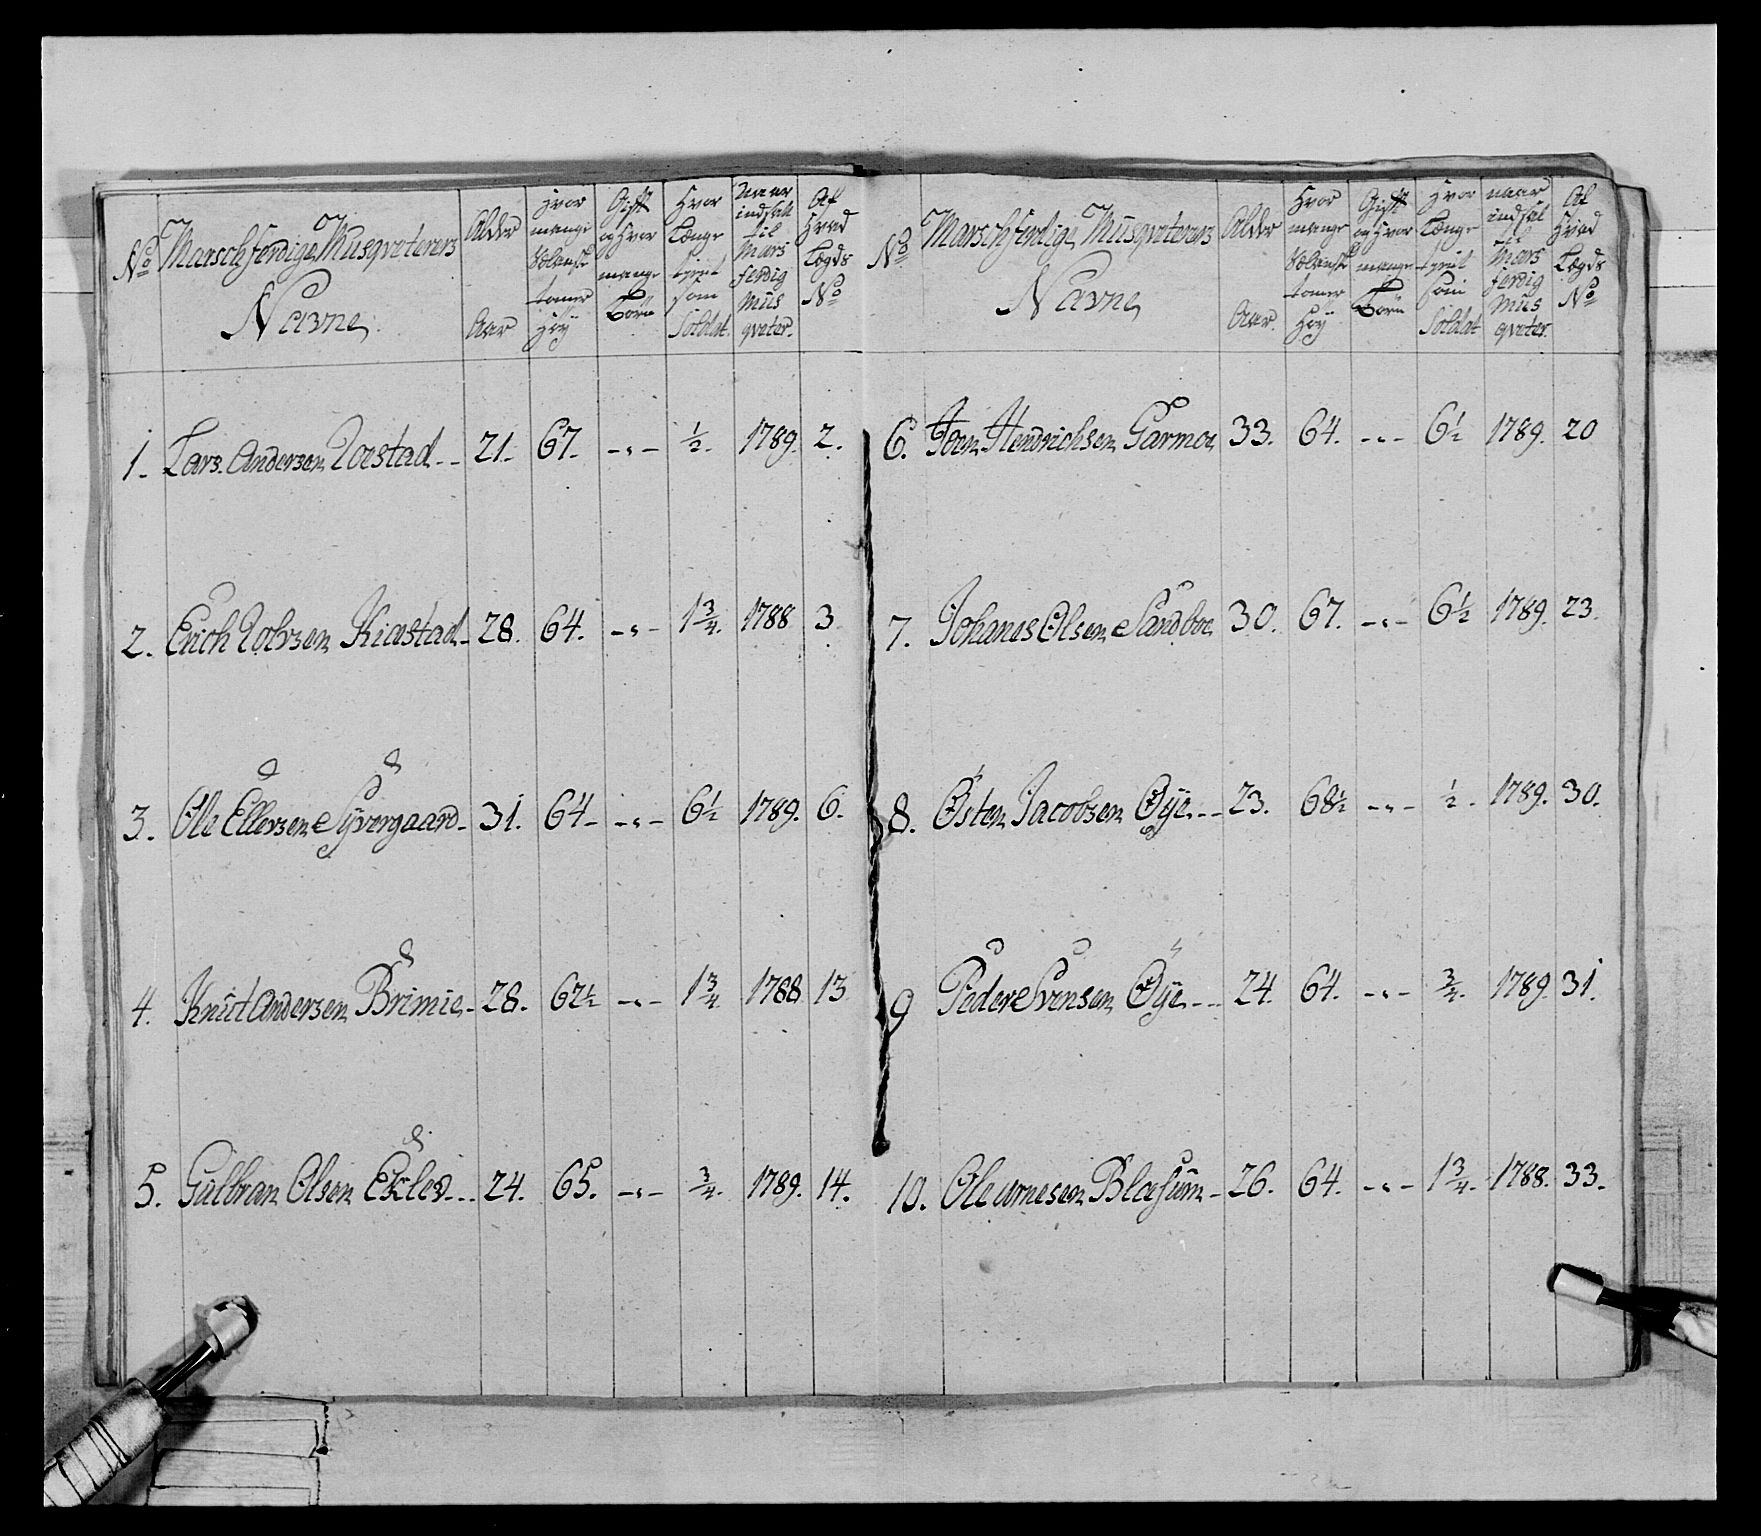 No
Marschferdige Musqveterers
Navne
Alder
Aar
Hvor
mange
Tomer
Høy
Gift
og Hvor
mange
Børn
Hvor
Længe
tient
som
Soldat
Naar
indsatt
til
Mars
ferdig
Mus
qveter.
Af
Hvad
Lægds
No
1. Lars Andersen Loestad 21. 67. -"- ½. 1789. 2.
2. Erich Tolvsen Kiøstad 28. 64. -"- 1¾. 1788 3.
3. Ole Ellersen Syvergaard 31. 64 -"- 6½ 1789. 6.
4. Knut Andersen Brimie 28. 62½ -"- 1¾ 1788 13
5. Gulbran Olsen Eklev 24. 65. -"- ¾. 1789. 14.
No
Marschferdige Musqveterers
Navne
Alder
Aar.
Hvor
mange
Tomer
Høy
Gift
og Hvor
mange
Børn
Hvor
Længe
tient
som
Soldat
Naar
indsat
til
Mars
ferdig
Mus
qveter.
Af
Hvad
Lægds
No
6. Joen Hendrichsen Garmoe 33. 64. -"- 6½ 1789. 20
7. Johanes Olsen Sandboe 30. 67. -"- 6½ 1789. 23.
8. Østen Jacobsen Øye 23. 68½ -"- ½. 1789. 30.
9 Peder Svensen Øye 24. 64. -"- ¾. 1789. 31.
10. Ole Arnesen Blæsum 26. 64. -"- 1¾. 1788. 33.